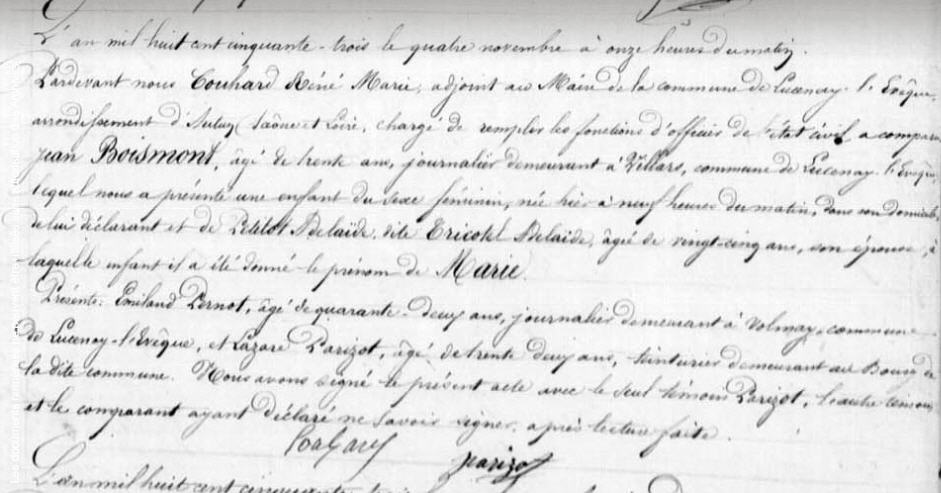 L'an mil huit cent cinquante-trois le quatre novembre à onze heures du matin.
Pardevant nous Couhard Réné Marie, adjoint au Maire de la commune de Lucenay-l'Evêque,
arrondissement d'Autun Saône et Loire, chargé de remplir les fonctions d'officier de l'état civil a comparu
Jean Boismont, âgé de trente ans, journalier demeurant à Villars, commune de Lucenay-l'Evêque,
lequel nous a présenté une enfant du sexe féminin, née hier à neuf heures du matin, dans son domicile,
de lui déclarant et de Petitot Adelaïde, dite Tricotel Adelaïde, âgée de vingt-cinq ans, son épouse, à
laquelle enfant il a été donné le prénom de Marie.
Présents: Emiland Pernot, âgé de quarante-deux ans, journalier demeurant à Volmay, commune
de Lucenay-l'Evêque, et Lazare Parizot, âgé de trente deux ans, teinturier demeurant au Bourg de
la dite commune. Nous avons signé le présent acte avec le seul témoin Parizot, l'autre témoin
et le comparant ayant déclaré ne savoir signer, après lecture faite.
parizot
L'an mil huit cent cinquante